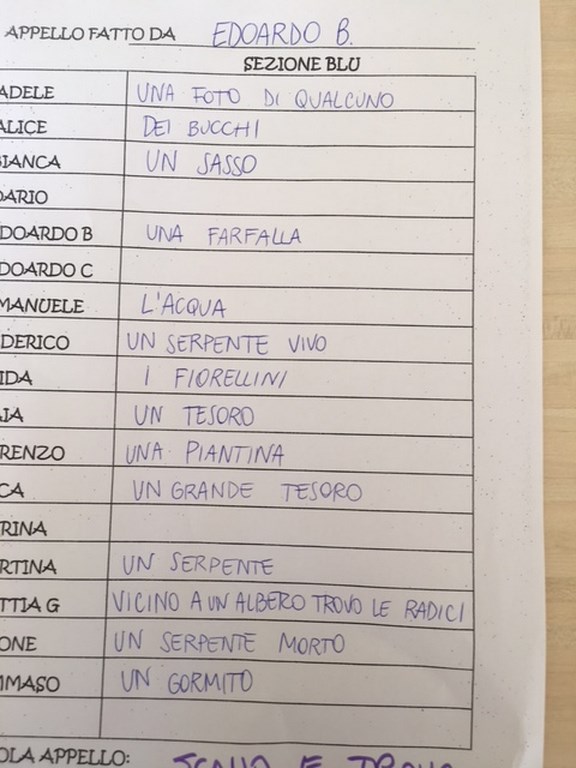 APPELLO FATTO DA EDOARDO B.
SEZIONE BLU
ADELE UNA FOTO DI QUALCUNO
ALICE DEI BUCCHI
BIANCA UN SASSO
DARIO
DOARDO B UNA FARFALLA
DOARDO C
MANUELE L'ACQUA
DERICO UN SERPENTE VIVO
IDA I FIORELLINI
AIA UN TESORO
RENZO UNA PIANTINA
CA UN GRANDE TESORO
RINA
RTINA UN SERPENTE
TTIA G VICINO A UN ALBERO TROVO LE RADICI
ONE UN SERPENTE MORTO
MMASO UN GORMITO
OLA APPELLO: SCAVO E TROVO